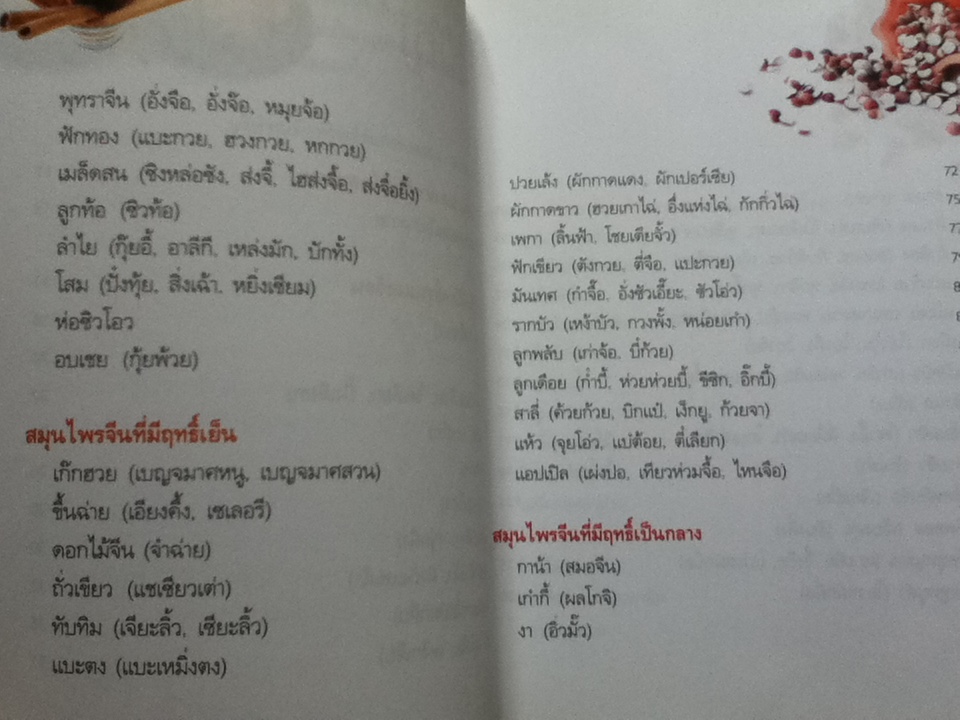 พุทราจีน (อั่งจือ, อั่งจ๊อ, หมุยจ้อ)
ฟักทอง (แบะกวย, ฮวงกวย, หกกวย)
เมล็ดสน (ซิงหล่อซัง, ส่งจี้, ไฮส่งจื้อ, ส่งจื่อยิ้ง)
ลูกท้อ (ซิวท้อ)
ลำไย (กุ๊ยอี้, อาลีกี, เหล่งมัก, บักทั้ง)
โสม (ปั่งทุ้ย, สิ่งเฉ้า, หยิ่งเซียม)
ห่อซิวโอว
อบเชย (กุ้ยพ้วย)
สมุนไพรจีนที่มีฤทธิ์เย็น
เก๊กฮวย (เบญจมาศหนู, เบญจมาศสวน)
ขึ้นฉ่าย (เอียงคึ้ง, เซเลอรี)
ดอกไม้จีน (จำฉ่าย)
ถั่วเขียว (แชเซียวเต่า)
ทับทิม (เจียะลิ้ว, เซียะลิ้ว)
แบะตง (แบะเหมิ่งตง)
ปวยเล้ง (ผักกาดแดง, ผักเปอร์เซีย) 72
ผักกาดขาว (ฮวยเกาไฉ่, อึ่งแห่งไฉ่, กักกิ่วไฉ่) 75
เพกา (ลิ้นฟ้า, โซยเตียจั้ว)
ฟักเขียว (ตังกวย, ตี่จือ, แปะกวย)
มันเทศ (กำจื๊อ, อั่งซัวเอี๊ยะ, ซัวโอ่ว)
รากบัว (เหง้าบัว, กวงพั้ง, หน่อยเก๋า)
ลูกพลับ (เก่าจ้อ, บี่ก้วย)
ลูกเดือย (ก่ำบี้, ห่วยห่วยบี้, ขีซิก, อิ๊กบี้)
สาลี่ (ค้วยก้วย, บิกแป๋, เง็กยู, ก้วยจา)
แห้ว (จุยโอ่ว, แบ่ต้อย, ตี่เลียก)
แอปเปิล (เผ่งปอ, เทียวห่วมจื้อ, ไหนจือ)
สมุนไพรจีนที่มีฤทธิ์เป็นกลาง
กาน้า (สมอจีน)
เก๋ากี้ (ผลโกจิ)
งา (อิ่วมั๊ว)